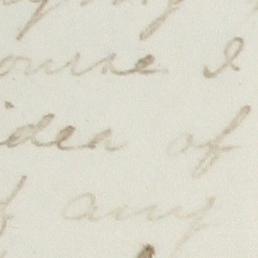 ourse I
idea of
any